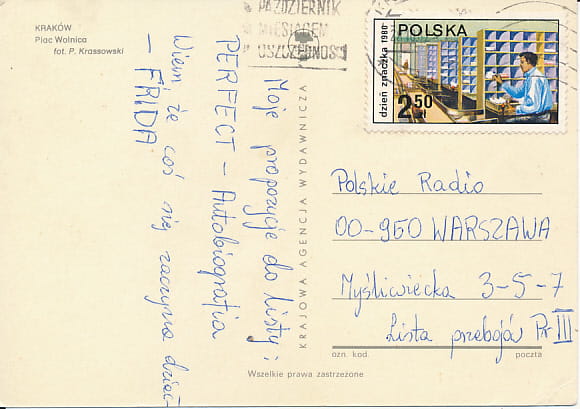 KRAKÓW
Plac Wolnica
fot. P. Krassowski
PAŹDZIERNIK
MIESIĄCEM
OSZCZĘDNOŚCI
POLSKA
dzień znaczka 1980
2.50
zł
Moje propozycje do listy:
PERFECT - Autobiografia
Wiem, że coś się zaczyna dziać
- FRIDA
KRAJOWA AGENCJA WYDAWNICZA
Polskie Radio
00-950 WARSZAWA
Myśliwiecka 3-5-7
Lista przeboj Pr III
ozn. kod. poczta
Wszelkie prawa zastrzeżone